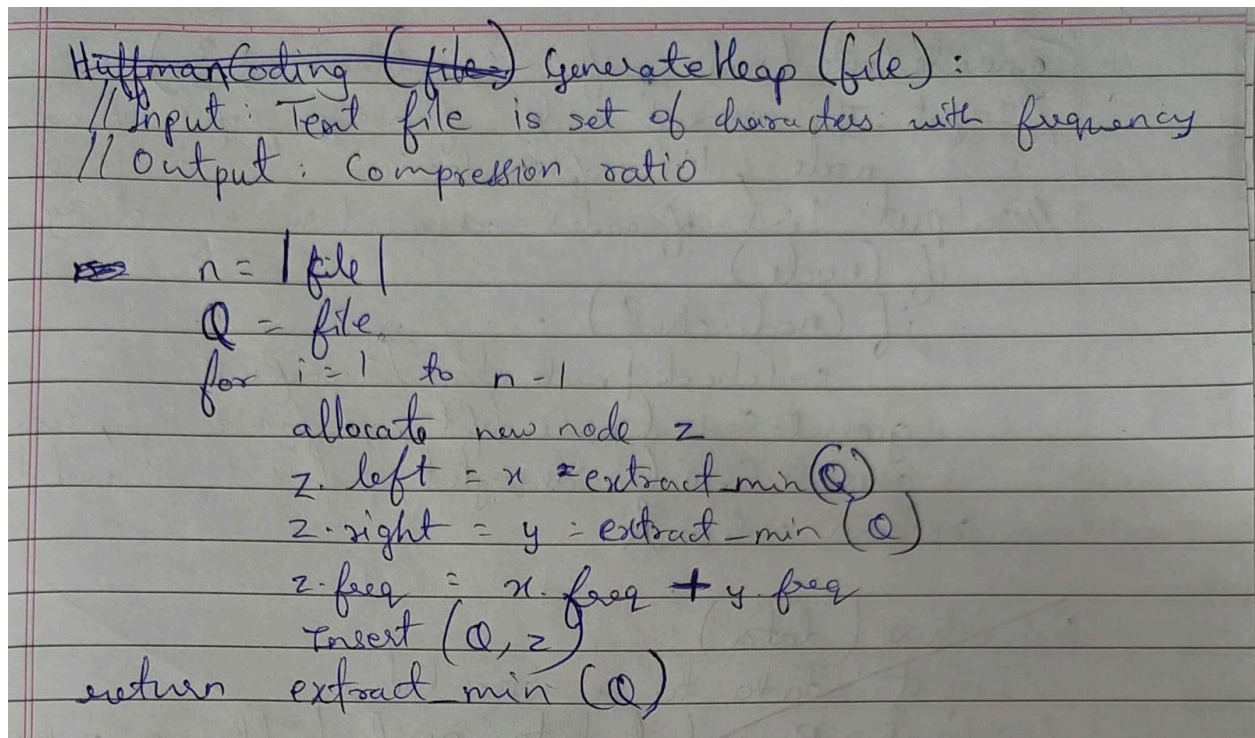 HuffmanCoding (file) GenerateHeap (file):
// Input: Text file is set of characters with frequency
// Output: Compression ratio
n = |file|
Q = file
for i = 1 to n-1
allocate new node z
z.left = x = extract_min(Q)
z.right = y = extract_min(Q)
z.freq = x.freq + y.freq
Insert (Q, z)
return extract_min (Q)